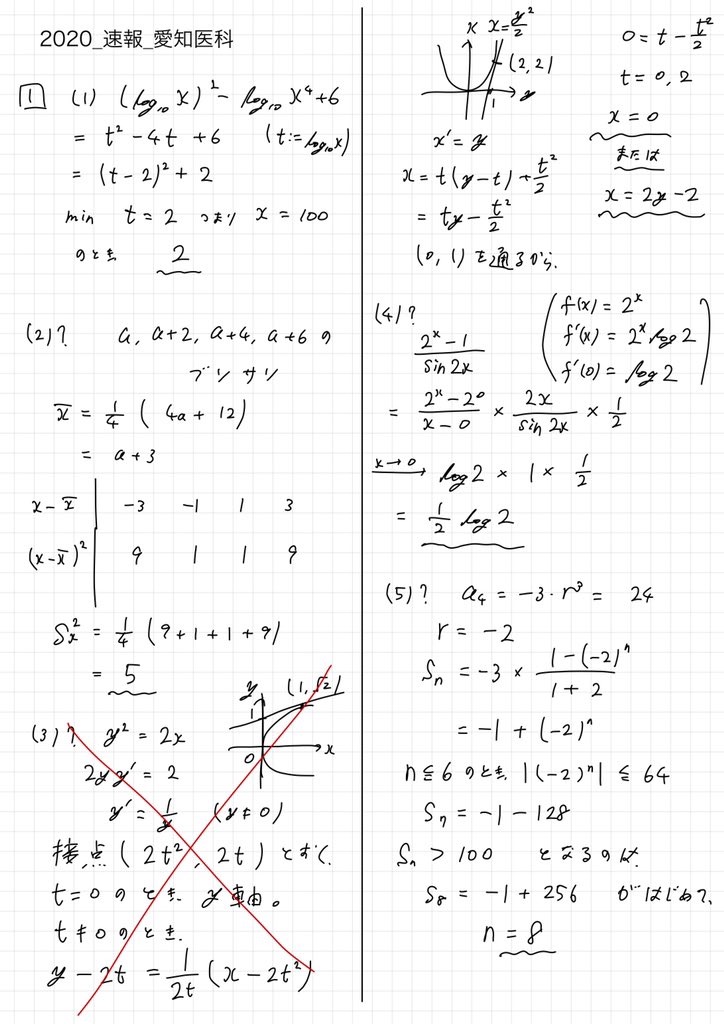 2020_速報_愛知医科
1 (1) (log₁₀x)² - log₁₀x⁴+6
= t² - 4t + 6 (t:=log₁₀x)
= (t-2)² + 2
min t = 2 つまり x = 100
のとき 2
(2)? a, a+2, a+4, a+6 の
ブンサン
x̄ = 1/4 ( 4a + 12)
= a+3
x - x̄ -3 -1 1 3
(x-x̄)² 9 1 1 9
Sx² = 1/4 (9+1+1+9)
= 5
y (1,√2)
1
0 x
(3)? y² = 2x
2yy' = 2
y' = 1/y (y≠0)
接点 (2t², 2t) とおく
t=0 のとき y軸。
t≠0 のとき
y - 2t = 1/2t (x - 2t²)
x x=y²/2
(2,2)
1 y
x' = y
x = t(y-t) + t²/2
= ty - t²/2
(0, 1) を通るから
0 = t - t²/2
t = 0, 2
x = 0
または
x = 2y-2
(4)?
2ˣ-1/sin2x
(f(x) = 2ˣ
f'(x) = 2ˣ log2
f'(0) = log2)
= 2ˣ-2⁰/x-0 × 2x/sin2x × 1/2
x→0 log2 × 1 × 1/2
= 1/2 log2
(5)? a₄ = -3・r³ = 24
r = -2
Sn = -3 × 1-(-2)ⁿ/1+2
= -1 + (-2)ⁿ
n≦6 のとき |(-2)ⁿ| ≦ 64
S₇ = -1 - 128
Sn > 100 となるのは
S₈ = -1 + 256 がはじめて
n = 8